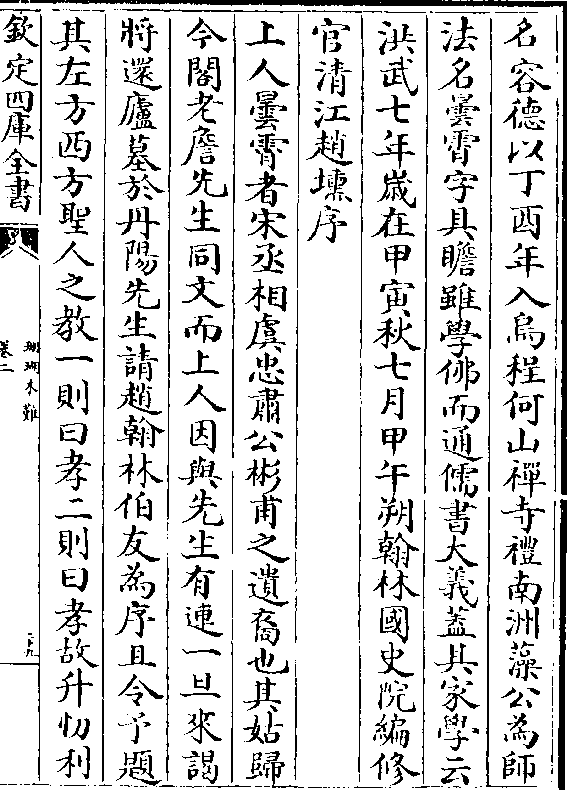 名容德以丁酉年入烏程何山禪寺禮南洲藻公為師
法名曇霄字具瞻雖學佛而通儒書大義蓋其家學云
洪武七年嵗在甲寅秋七月甲午朔翰林國史院編修
官清江趙壎序
上人曇霄者宋丞相虞忠肅公彬甫之遺裔也其姑歸
今閣老詹先生同文而上人因與先生有連一旦來謁
將還廬墓於丹陽先生請趙翰林伯友為序且令予題
其左方西方聖人之教一則曰孝二則曰孝故升忉利
欽定四庫全書
珊瑚木難
卷二
二九